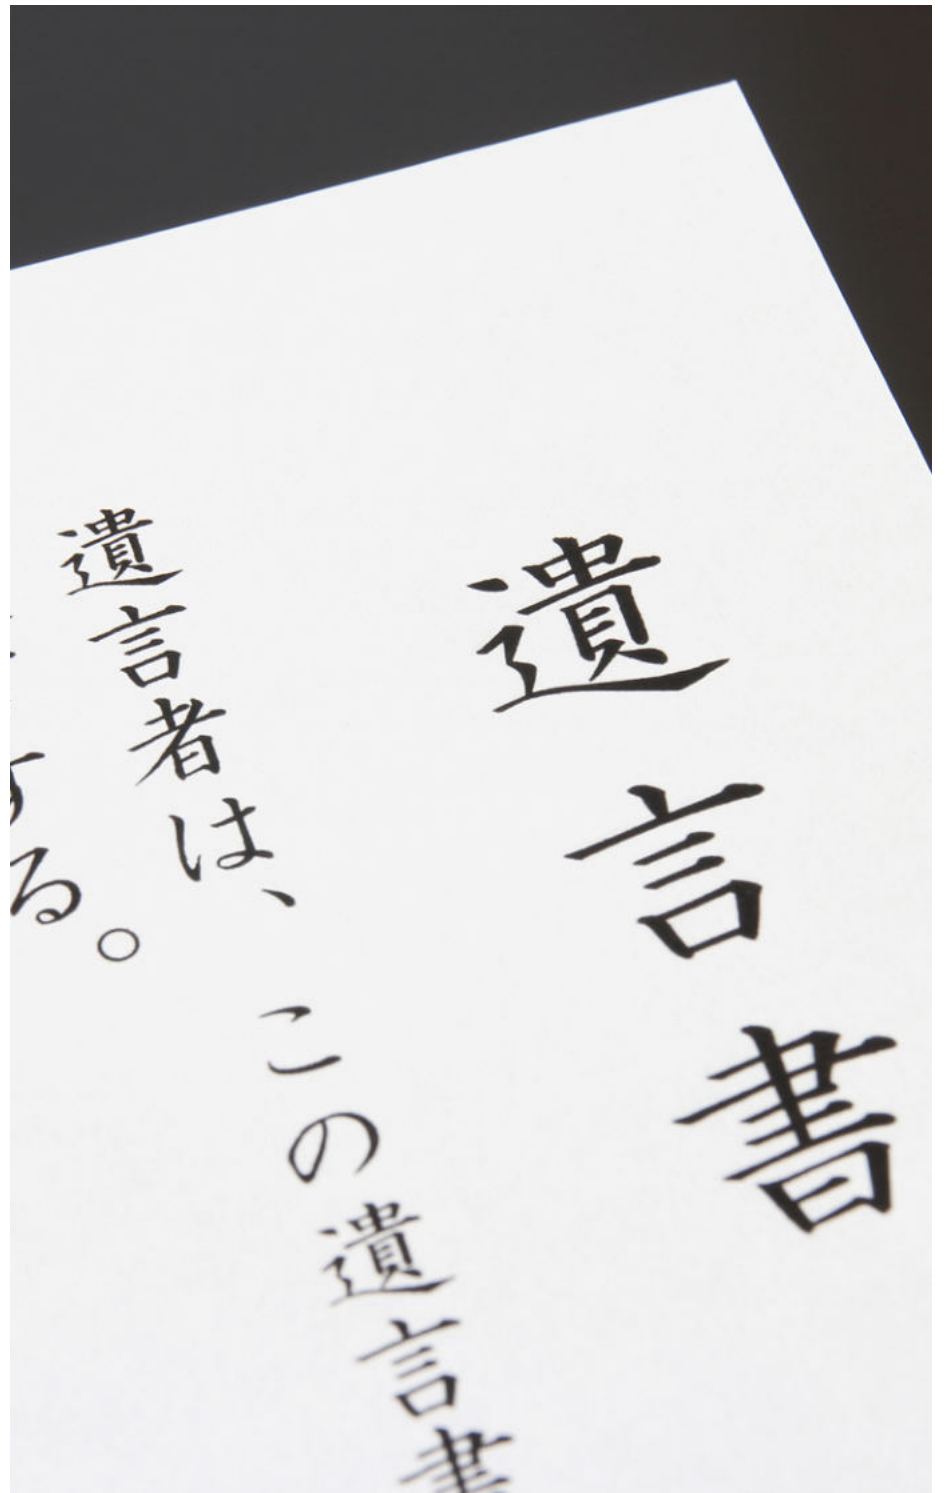 遺言書
遺言者は、この遺言書
する。